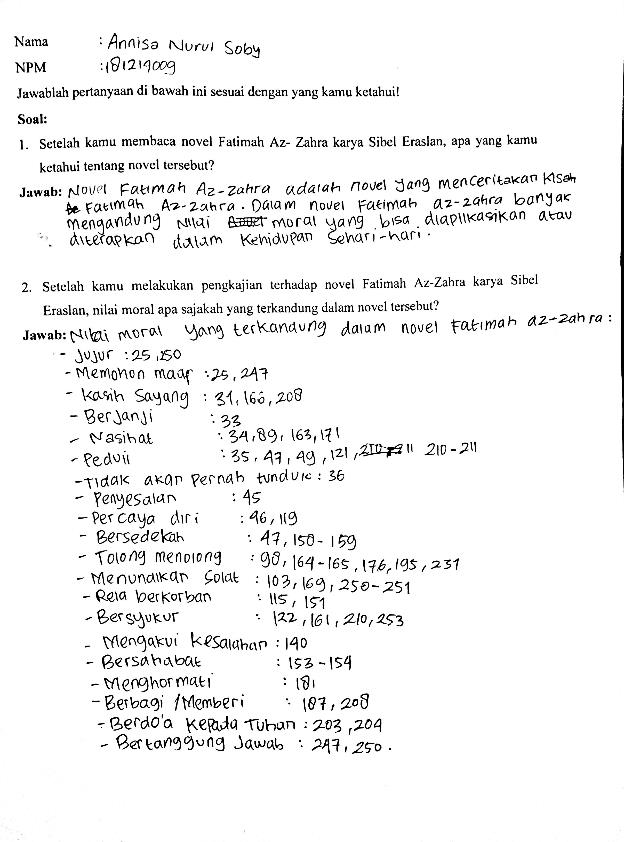 Nama : Annisa Nurul Soby
NPM : 181214009
Jawablah pertanyaan di bawah ini sesuai dengan yang kamu ketahui!
Soal:
1. Setelah kamu membaca novel Fatimah Az- Zahra karya Sibel Eraslan, apa yang kamu
ketahui tentang novel tersebut?
Jawab: Novel Fatimah Az-Zahra adalah novel yang menceritakan Kisah
Fatimah Az-zahra. Dalam novel Fatimah az-zahra banyak
mengandung Nilai moral yang bisa diaplikasikan atau
diterapkan dalam Kehidupan Sehari-hari.
2. Setelah kamu melakukan pengkajian terhadap novel Fatimah Az-Zahra karya Sibel
Eraslan, nilai moral apa sajakah yang terkandung dalam novel tersebut?
Jawab: Nilai moral yang terkandung dalam novel Fatimah az-zahra :
- Jujur : 25, 250
- Memohon maaf : 25, 247
- Kasih Sayang : 31, 166, 208
- Berjanji : 33
- Nasihat : 34, 89, 163, 171
- Peduli : 35, 47, 49, 121, 210-211
- Tidak akan Pernah tunduk : 36
- Penyesalan : 45
- Percaya diri : 46, 119
- Bersedekah : 47, 158-159
- Tolong menolong : 98, 164-165, 176, 195, 231
- Menundikan Solat : 103, 169, 250-251
- Rela berkorban : 115, 151
- Bersyukur : 122, 161, 210, 253
- Mengakui kesalahan : 140
- Bersahabat : 153-154
- Menghormati : 181
- Berbagi / Memberi : 187, 208
- Berdo'a Kepada Tuhan : 203, 204
- Bertanggung Jawab : 247, 250.